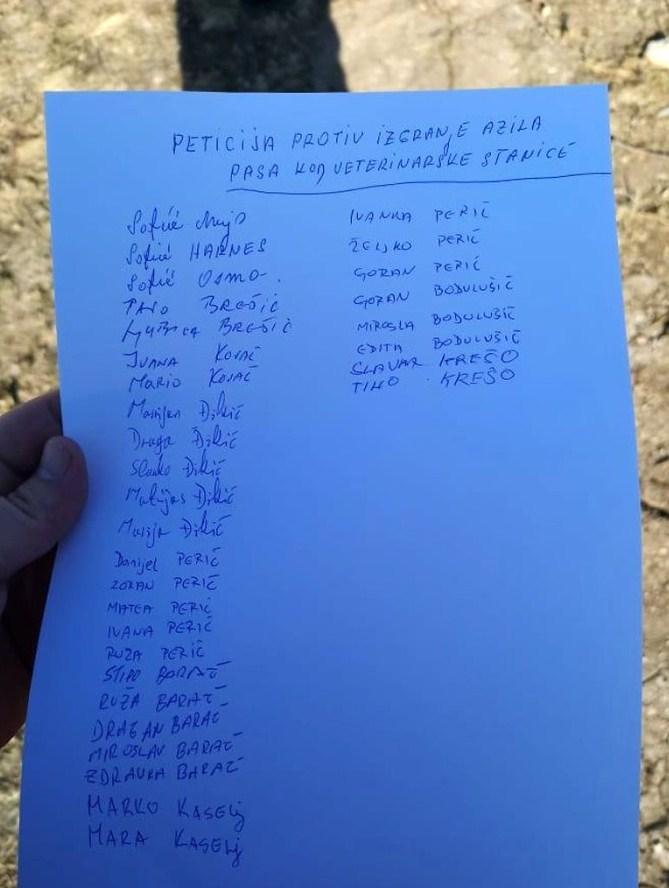 PETICIJA PROTIV IZGRANJE AZILA
PASA KOD VETERINARSKE STANICE
Softić Mujo
Softić HARNES
Softić OSMO.
PAVO BREŠIĆ
LJUBICA BREŠIĆ
IVANA KOVAČ
MARIO KOVAČ
Marijan Đikić
Draga Đikić
Slavko Đikić
Matijas Đikić
Marija Đikić
Danijel PERIĆ
ZORAN PERIĆ
MATEA PERIĆ
IVANA PERIĆ
RUZA PERIĆ
STIPO BARAĆ
RUŽA BARAĆ
DRAGAN BARAĆ
MIROSLAV BARAĆ
ZDRAVKA BARAĆ
MARKO KASELJ
MARA KASELJ
IVANKA PERIĆ
ŽELJKO PERIĆ
GORAN PERIĆ
GORAN BODULUŠIĆ
MIROSLA BODULUŠIĆ
EDITA BODULUŠIĆ
SLAVAR KREŠO
TIHO KREŠO